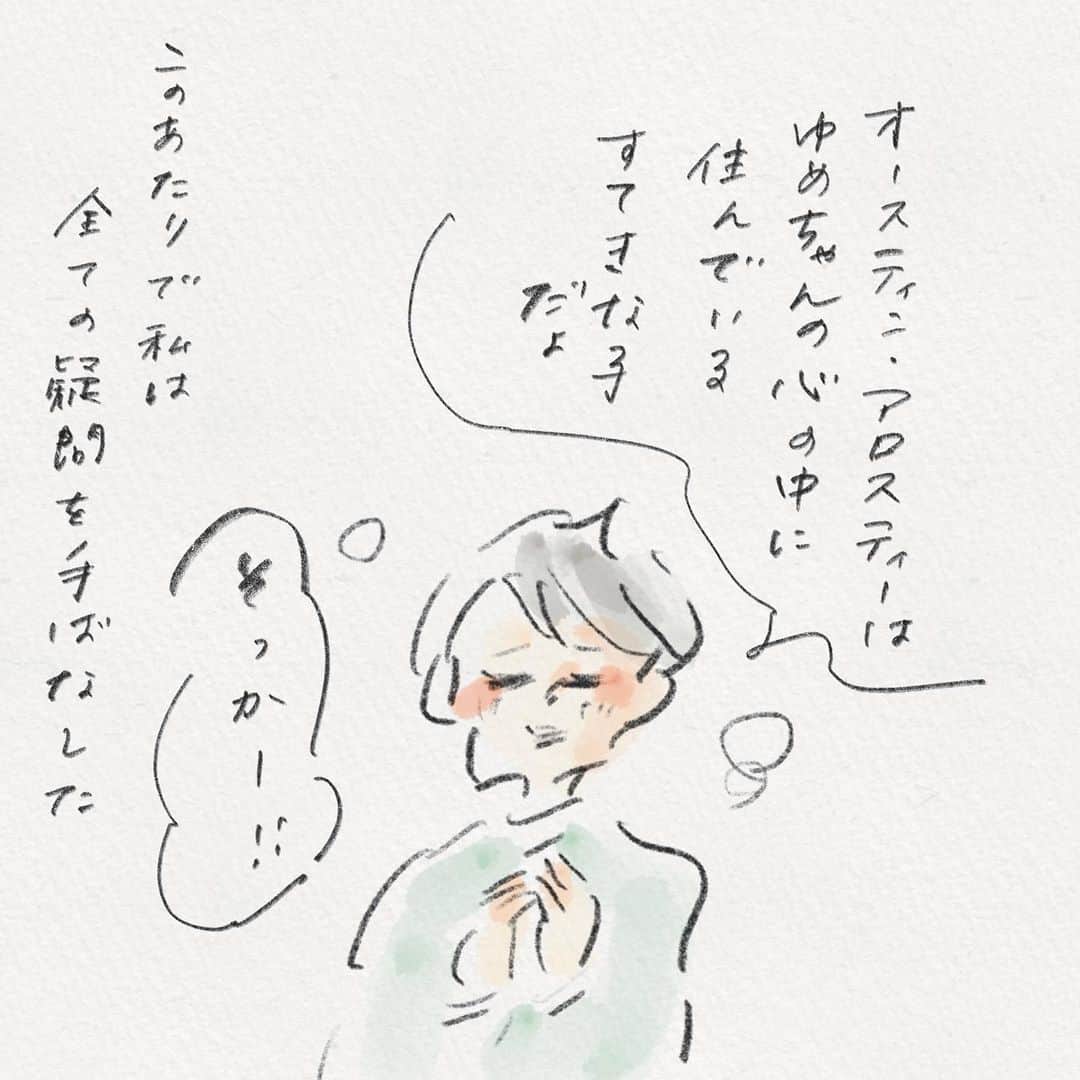 オースティン・アロスティーは
ゆめちゃんの心の中に
住んでいる
すてきな子
だよ
そっかー!!
このあたりで私は
全ての疑問を手ばなした